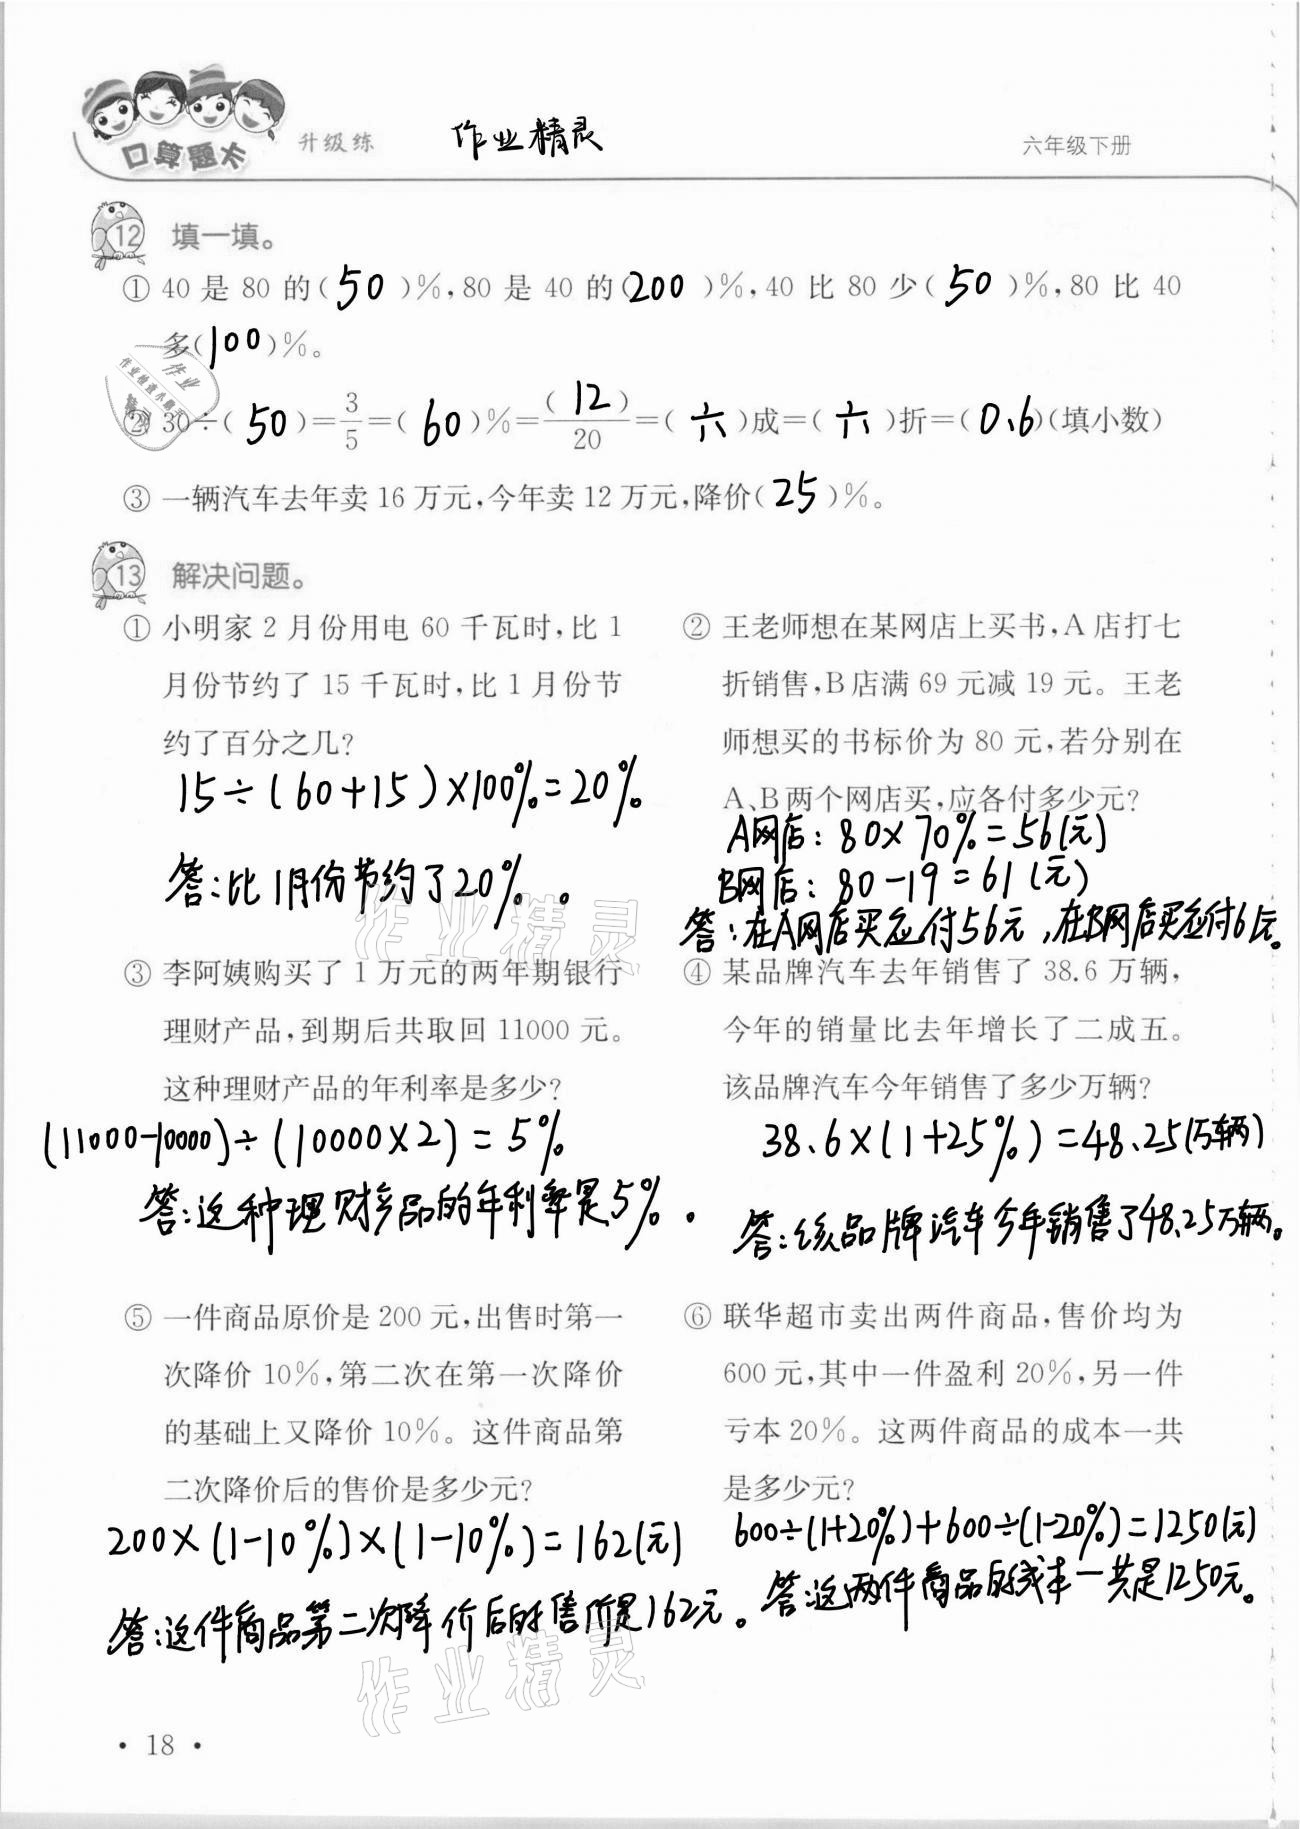 口算题卡 升级练 作业精灵 六年级下册
12 填一填。
① 40 是 80 的(50)%,80 是 40 的(200)%,40 比 80 少(50)%,80 比 40
多(100)%。
② 30÷(50)=3/5=(60)%=(12)/20=(六)成=(六)折=(0.6)(填小数)
③ 一辆汽车去年卖 16 万元,今年卖 12 万元,降价(25)%。
13 解决问题。
① 小明家 2 月份用电 60 千瓦时,比 1
月份节约了 15 千瓦时,比 1 月份节
约了百分之几?
15÷(60+15)×100%=20%
答:比1月份节约了20%。
② 王老师想在某网店上买书,A 店打七
折销售,B 店满 69 元减 19 元。王老
师想买的书标价为 80 元,若分别在
A、B 两个网店买,应各付多少元?
A网店:80×70%=56(元)
B网店:80-19=61(元)
答:在A网店买应付56元,在B网店买应付61元。
③ 李阿姨购买了 1 万元的两年期银行
理财产品,到期后共取回 11000 元。
这种理财产品的年利率是多少?
(11000-10000)÷(10000×2)=5%
答:这种理财产品的年利率是5%。
④ 某品牌汽车去年销售了 38.6 万辆,
今年的销量比去年增长了二成五。
该品牌汽车今年销售了多少万辆?
38.6×(1+25%)=48.25(万辆)
答:该品牌汽车今年销售了48.25万辆。
⑤ 一件商品原价是 200 元,出售时第一
次降价 10%,第二次在第一次降价
的基础上又降价 10%。这件商品第
二次降价后的售价是多少元?
200×(1-10%)×(1-10%)=162(元)
答:这件商品第二次降价后的售价是162元。
⑥ 联华超市卖出两件商品,售价均为
600 元,其中一件盈利 20%,另一件
亏本 20%。这两件商品的成本一共
是多少元?
600÷(1+20%)+600÷(1-20%)=1250(元)
答:这两件商品的成本一共是1250元。
作业精灵
作业精灵
· 18 ·